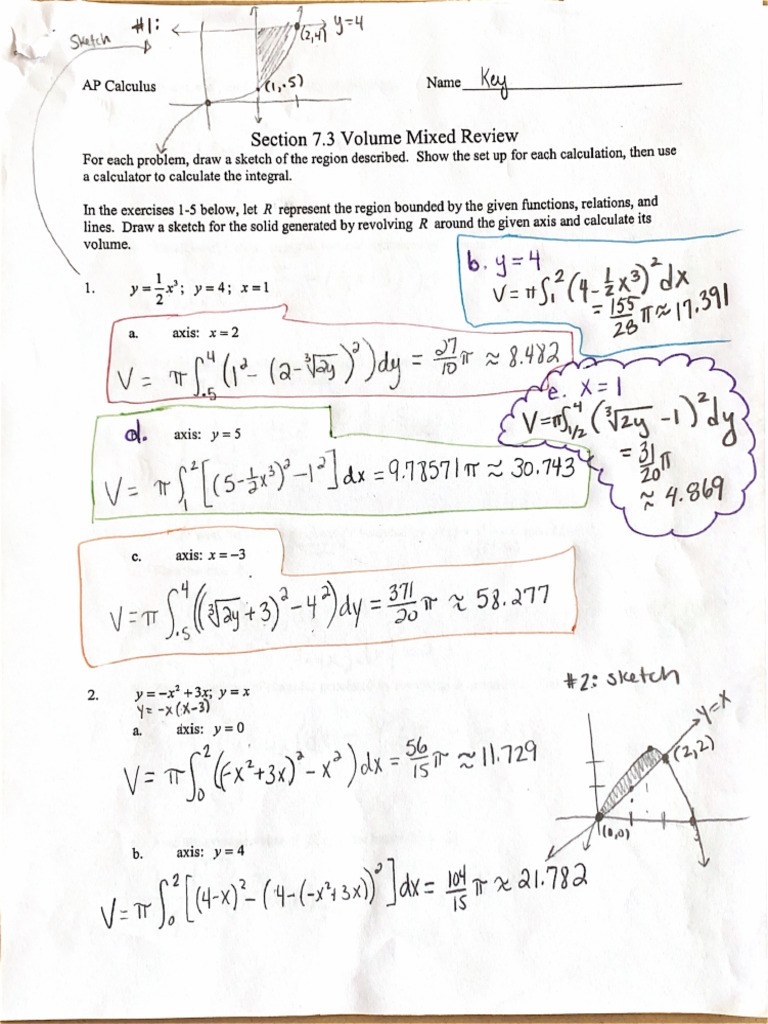 Sketch #1: y=4
(2,4)
(1,.5)
AP Calculus Name Key
Section 7.3 Volume Mixed Review
For each problem, draw a sketch of the region described. Show the set up for each calculation, then use
a calculator to calculate the integral.
In the exercises 1-5 below, let R represent the region bounded by the given functions, relations, and
lines. Draw a sketch for the solid generated by revolving R around the given axis and calculate its
volume.
b. y=4
V = π∫₁² (4-½x³)² dx
= 155/28 π ≈ 17.391
1. y = ½x³; y = 4; x = 1
a. axis: x = 2
V = π∫.₅⁴ (1² - (2-∛2y)²) dy = 27/10 π ≈ 8.482
e. x = 1
V = π∫₁/₂⁴ (∛2y - 1)² dy
= 31/20 π
≈ 4.869
d. axis: y = 5
V = π∫₁² [(5-½x³)² - 1²] dx = 9.78571π ≈ 30.743
c. axis: x = −3
V = π∫.₅⁴ ((∛2y + 3)² - 4²) dy = 371/20 π ≈ 58.277
#2: sketch
2. y = −x² + 3x; y = x
y = -x(x-3)
a. axis: y = 0
V = π∫₀² ((-x²+3x)² - x²) dx = 56/15 π ≈ 11.729
y=x
(2,2)
(0,0)
3
b. axis: y = 4
V = π∫₀² [(4-x)² - (4-(-x²+3x))²] dx = 104/15 π ≈ 21.782